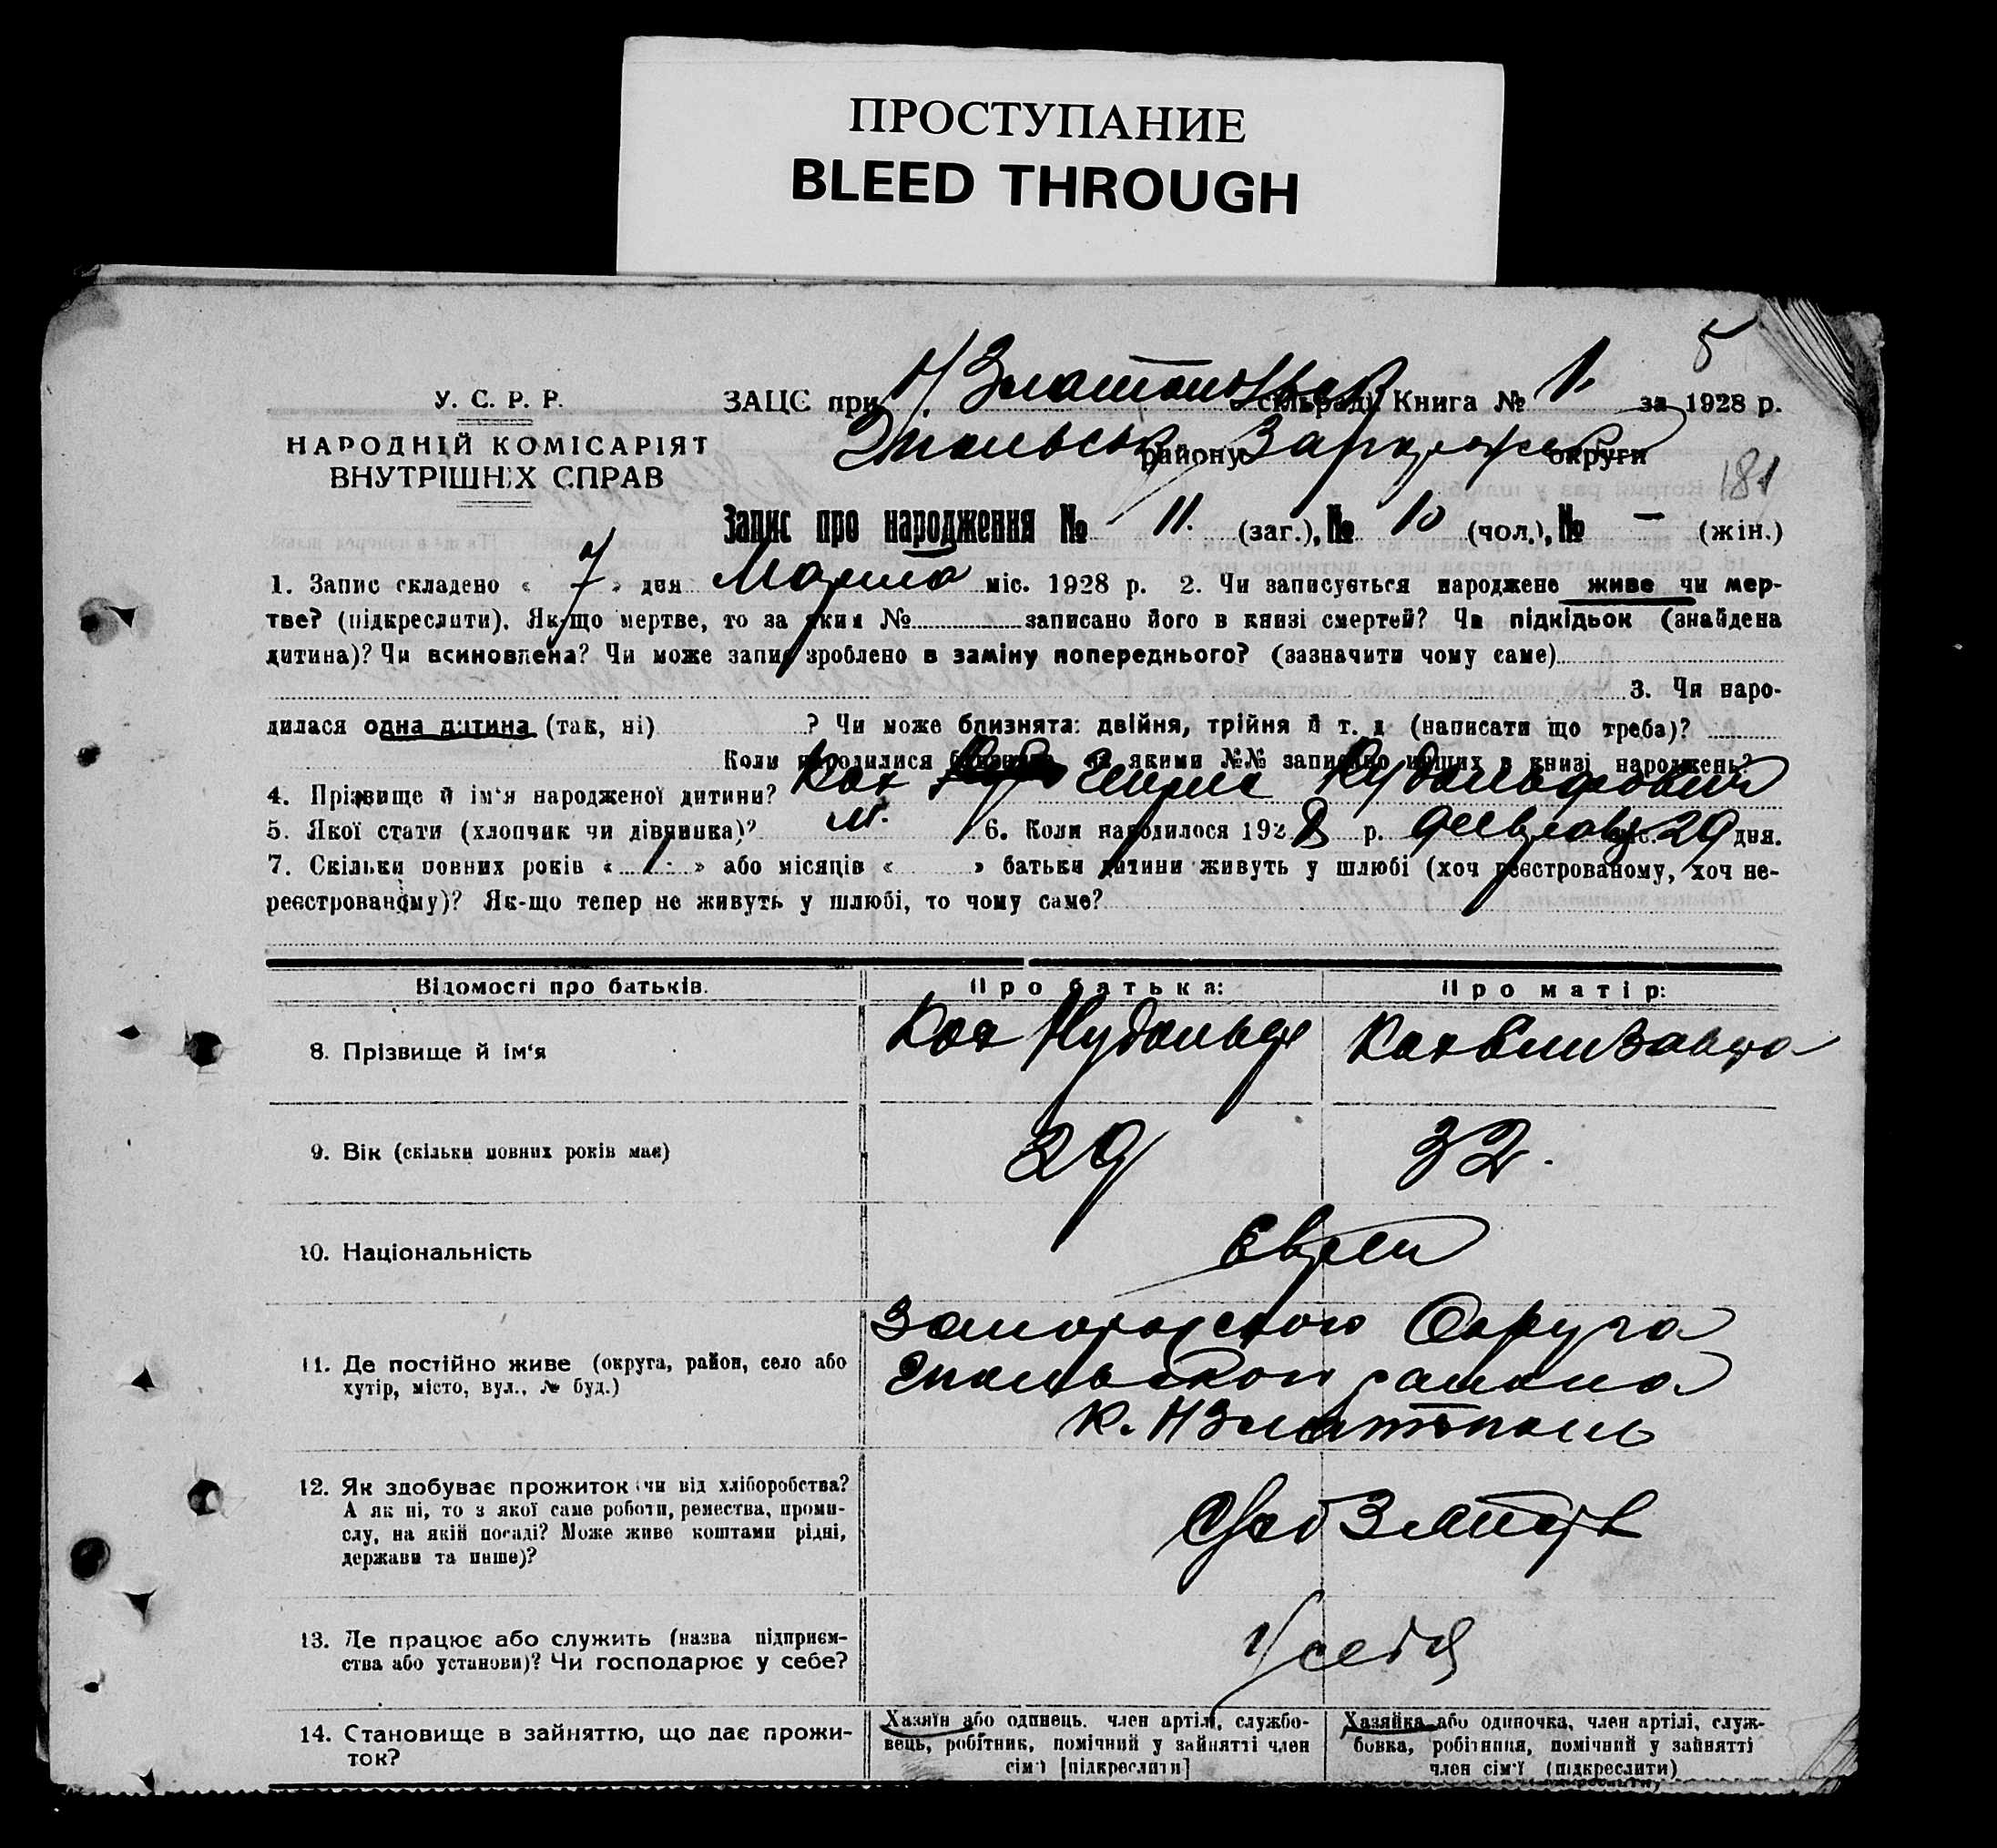 ПРОСТУПАНИЕ
BLEED THROUGH
5
У. С. Р. Р.
ЗАЦС при Н/Златопольск сільраді Книга № 1. за 1928 р.
НАРОДНІЙ КОМІСАРІЯТ
ВНУТРІШНІХ СПРАВ
району округи
181
Запис про народження № 11. (заг.), № 10 (чол.), № – (жін.)
1. Запис складено « 7 » дня Марта міс. 1928 р. 2. Чи записується народжене живе чи мер-
тве? (підкреслити). Як-що мертве, то за яким № записано його в книзі смертей? Чи підкідьок (знайдена
дитина)? Чи всиновлена? Чи може запис зроблено в заміну попереднього? (зазначити чому саме)
3. Чи наро-
дилася одна дитина (так, ні) ? Чи може близнята: двійня, трійня й т. д (написати що треба)?
Коли народилися за якими №№ записано інших в книзі народжень?
4. Прізвище й ім'я народженої дитини? Кох Рудольфович
5. Якої стати (хлопчик чи дівчинка)? м. 6. Коли народилося 1928 р. февраля міс. 29 дня.
7. Скільки повних років « 1 » або місяців « » батьки дитини живуть у шлюбі (хоч реєстрованому, хоч не-
реєстрованому)? Як-що тепер не живуть у шлюбі, то чому саме?
Відомості про батьків. Про батька: Про матір:
8. Прізвище й ім'я Кох Рудольф Кох Елизавета
9. Вік (скільки повних років має) 29 32.
10. Національність Евреи
11. Де постійно живе (округа, район, село або
хутір, місто, вул., № буд.)
Запорожского Округа
района
к. Н Златополь
12. Як здобуває прожиток (чи від хліборобства?
А як ні, то з якої саме роботи, ремества, проми-
слу, на якій посаді? Може живе коштами рідні,
держави та инше)?
13. Де працює або служить (назва підприєм-
ства або установи)? Чи господарює у себе?
У себя
14. Становище в зайняттю, що дає прожи-
ток?
Хазяїн або одинець, член артілі, службо-
вець, робітник, помічний у зайнятті член
сім'ї [підкреслити]
Хазяйка або одиночка, член артілі, служ-
бовка, робітниця, помічний у зайнятті
член сім'ї (підкреслити)